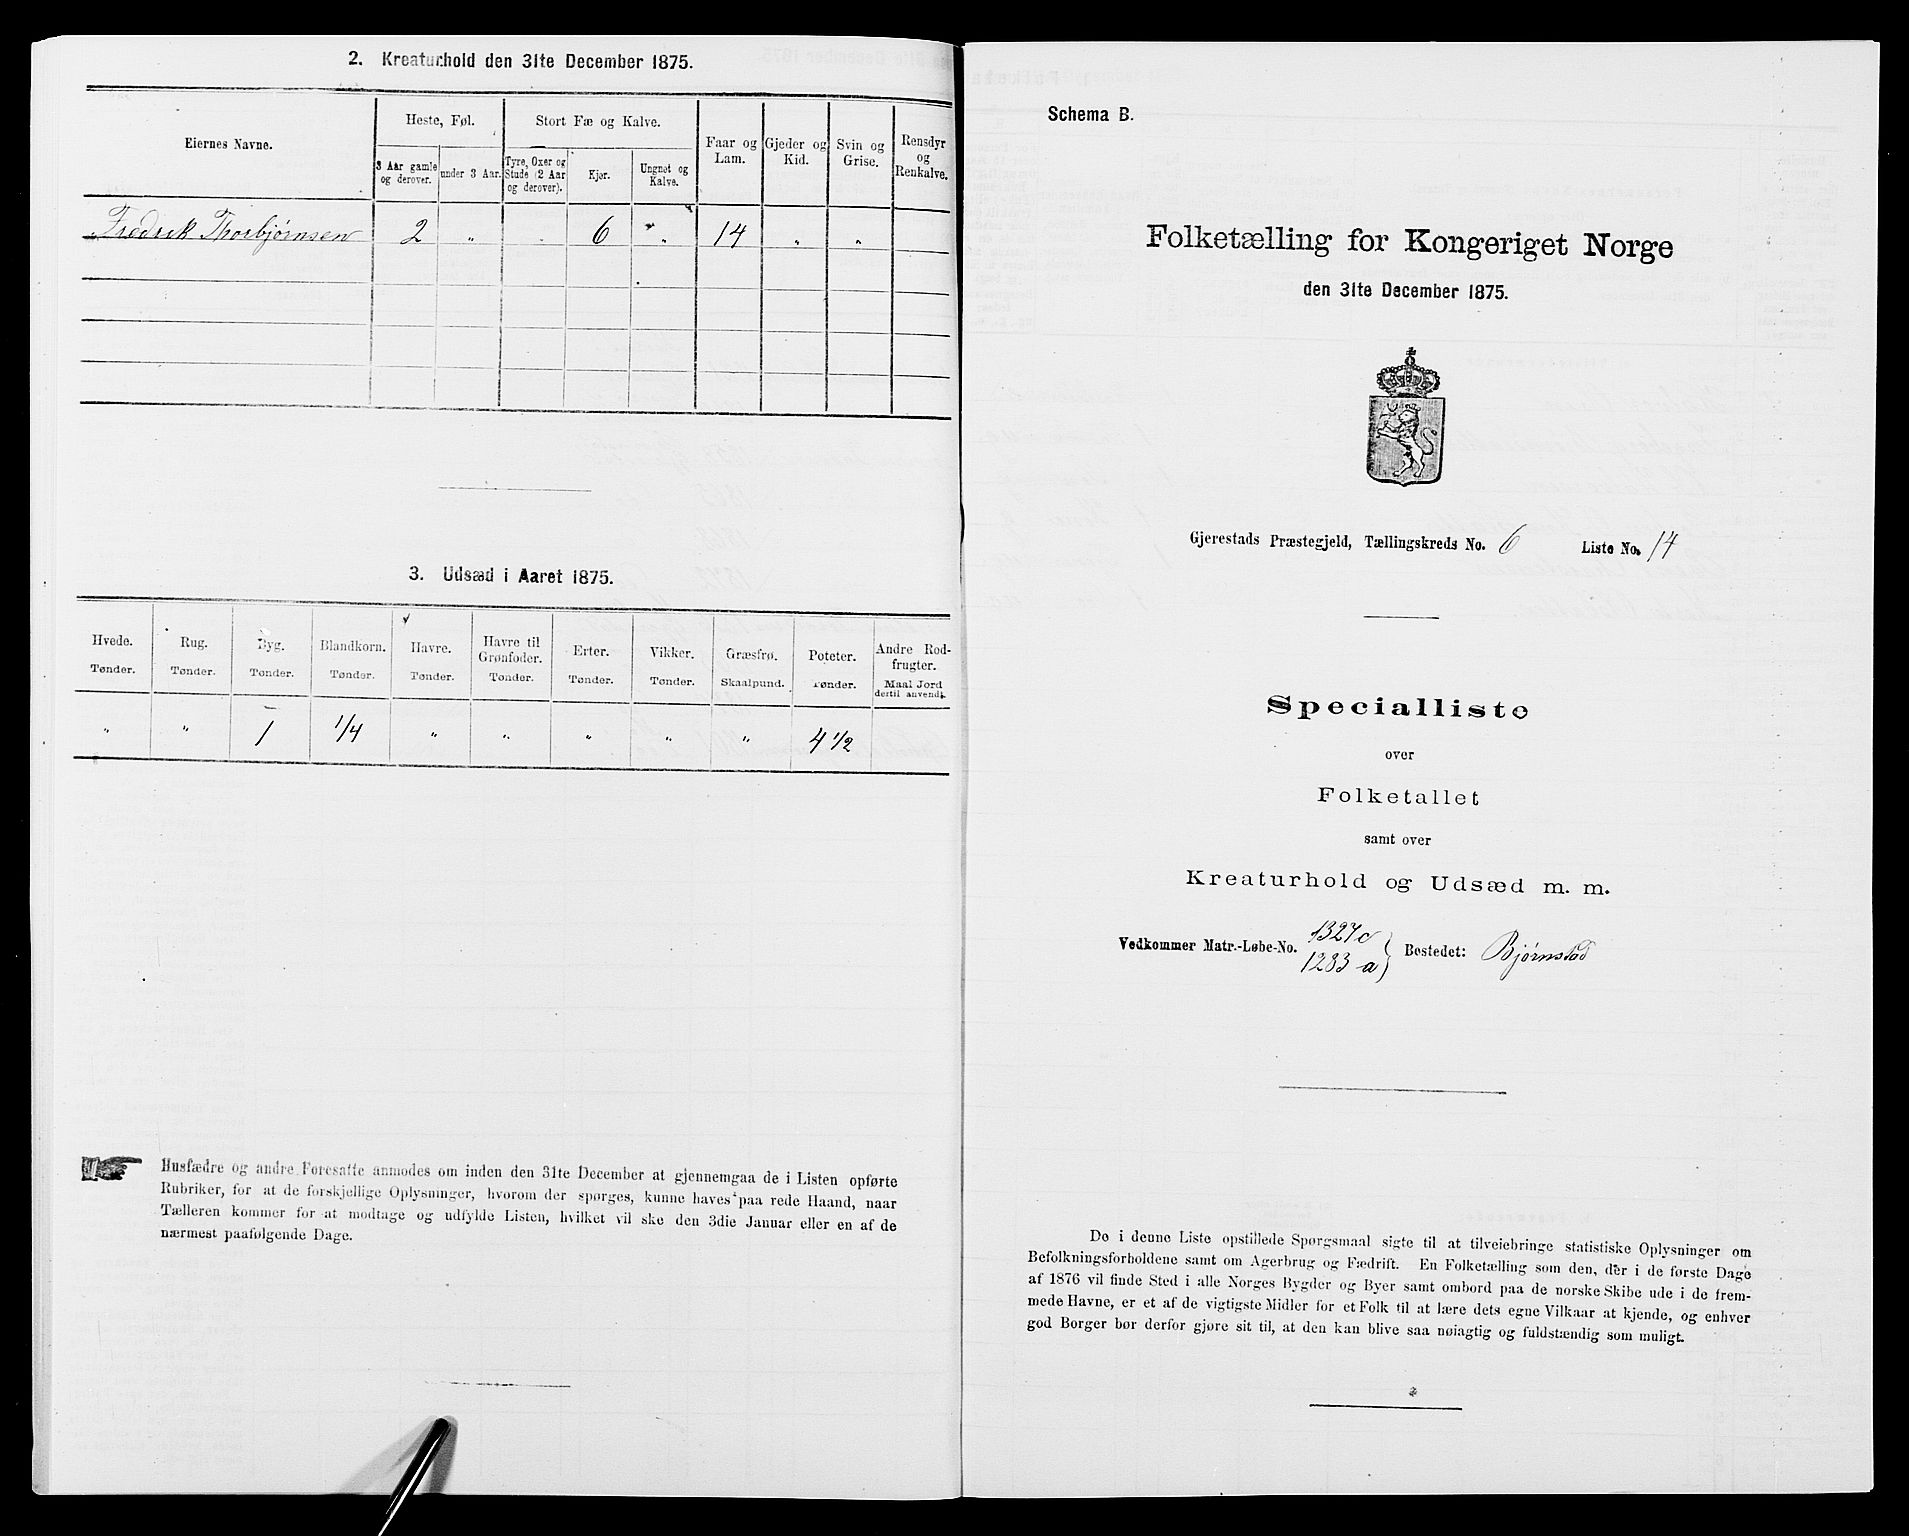 2. Kreaturhold den 31te December 1875.
Eiernes Navne.
Heste, Føl.
Stort Fæ og Kalve.
Faar og Lam.
Gjeder og Kid.
Svin og Grise.
Rensdyr og Renkalve.
3 Aar gamle og derover.
under 3 Aar.
Tyre, Oxer og Stude (2 Aar og derover).
Kjør.
Ungnøt og Kalve.
Fredrik Thorbjørnsen 2 " . 6 " 14 " "
3. Udsæd i Aaret 1875.
Hvede. Rug. Byg. Blandkorn. Havre. Havre til Grønfoder. Erter. Vikker. Græsfrø. Poteter. Andre Rodfrugter.
Tønder. Tønder. Tønder. Tønder. Tønder. Tønder. Tønder. Tønder. Skaalpund. Tønder. Maal Jord dertil anvendt.
" " 1 1/4 " " " " " 4 1/2
Husfædre og andre Foresatte anmodes om inden den 31te December at gjennemgaa de i Listen opførte
Rubriker, for at de forskjellige Oplysninger, hvorom der spørges, kunne haves paa rede Haand, naar
Tælleren kommer for at modtage og udfylde Listen, hvilket vil ske den 3die Januar eller en af de
nærmest paafølgende Dage.
Schema B.
Folketælling for Kongeriget Norge
den 31te December 1875.
Gjerestads Præstegjeld, Tællingskreds No. 6 Liste No. 14
Specialliste
over
Folketallet
samt over
Kreaturhold og Udsæd m. m.
Vedkommer Matr.-Løbe-No. 1327c 1283 a } Bostedet: Bjørnstad
De i denne Liste opstillede Spørgsmaal sigte til at tilveiebringe statistiske Oplysninger om
Befolkningsforholdene samt om Agerbrug og Fædrift. En Folketælling som den, der i de første Dage
af 1876 vil finde Sted i alle Norges Bygder og Byer samt ombord paa de norske Skibe ude i de frem-
mede Havne, er et af de vigtigste Midler for et Folk til at lære dets egne Vilkaar at kjende, og enhver
god Borger bør derfor gjøre sit til, at den kan blive saa nøiagtig og fuldstændig som muligt.